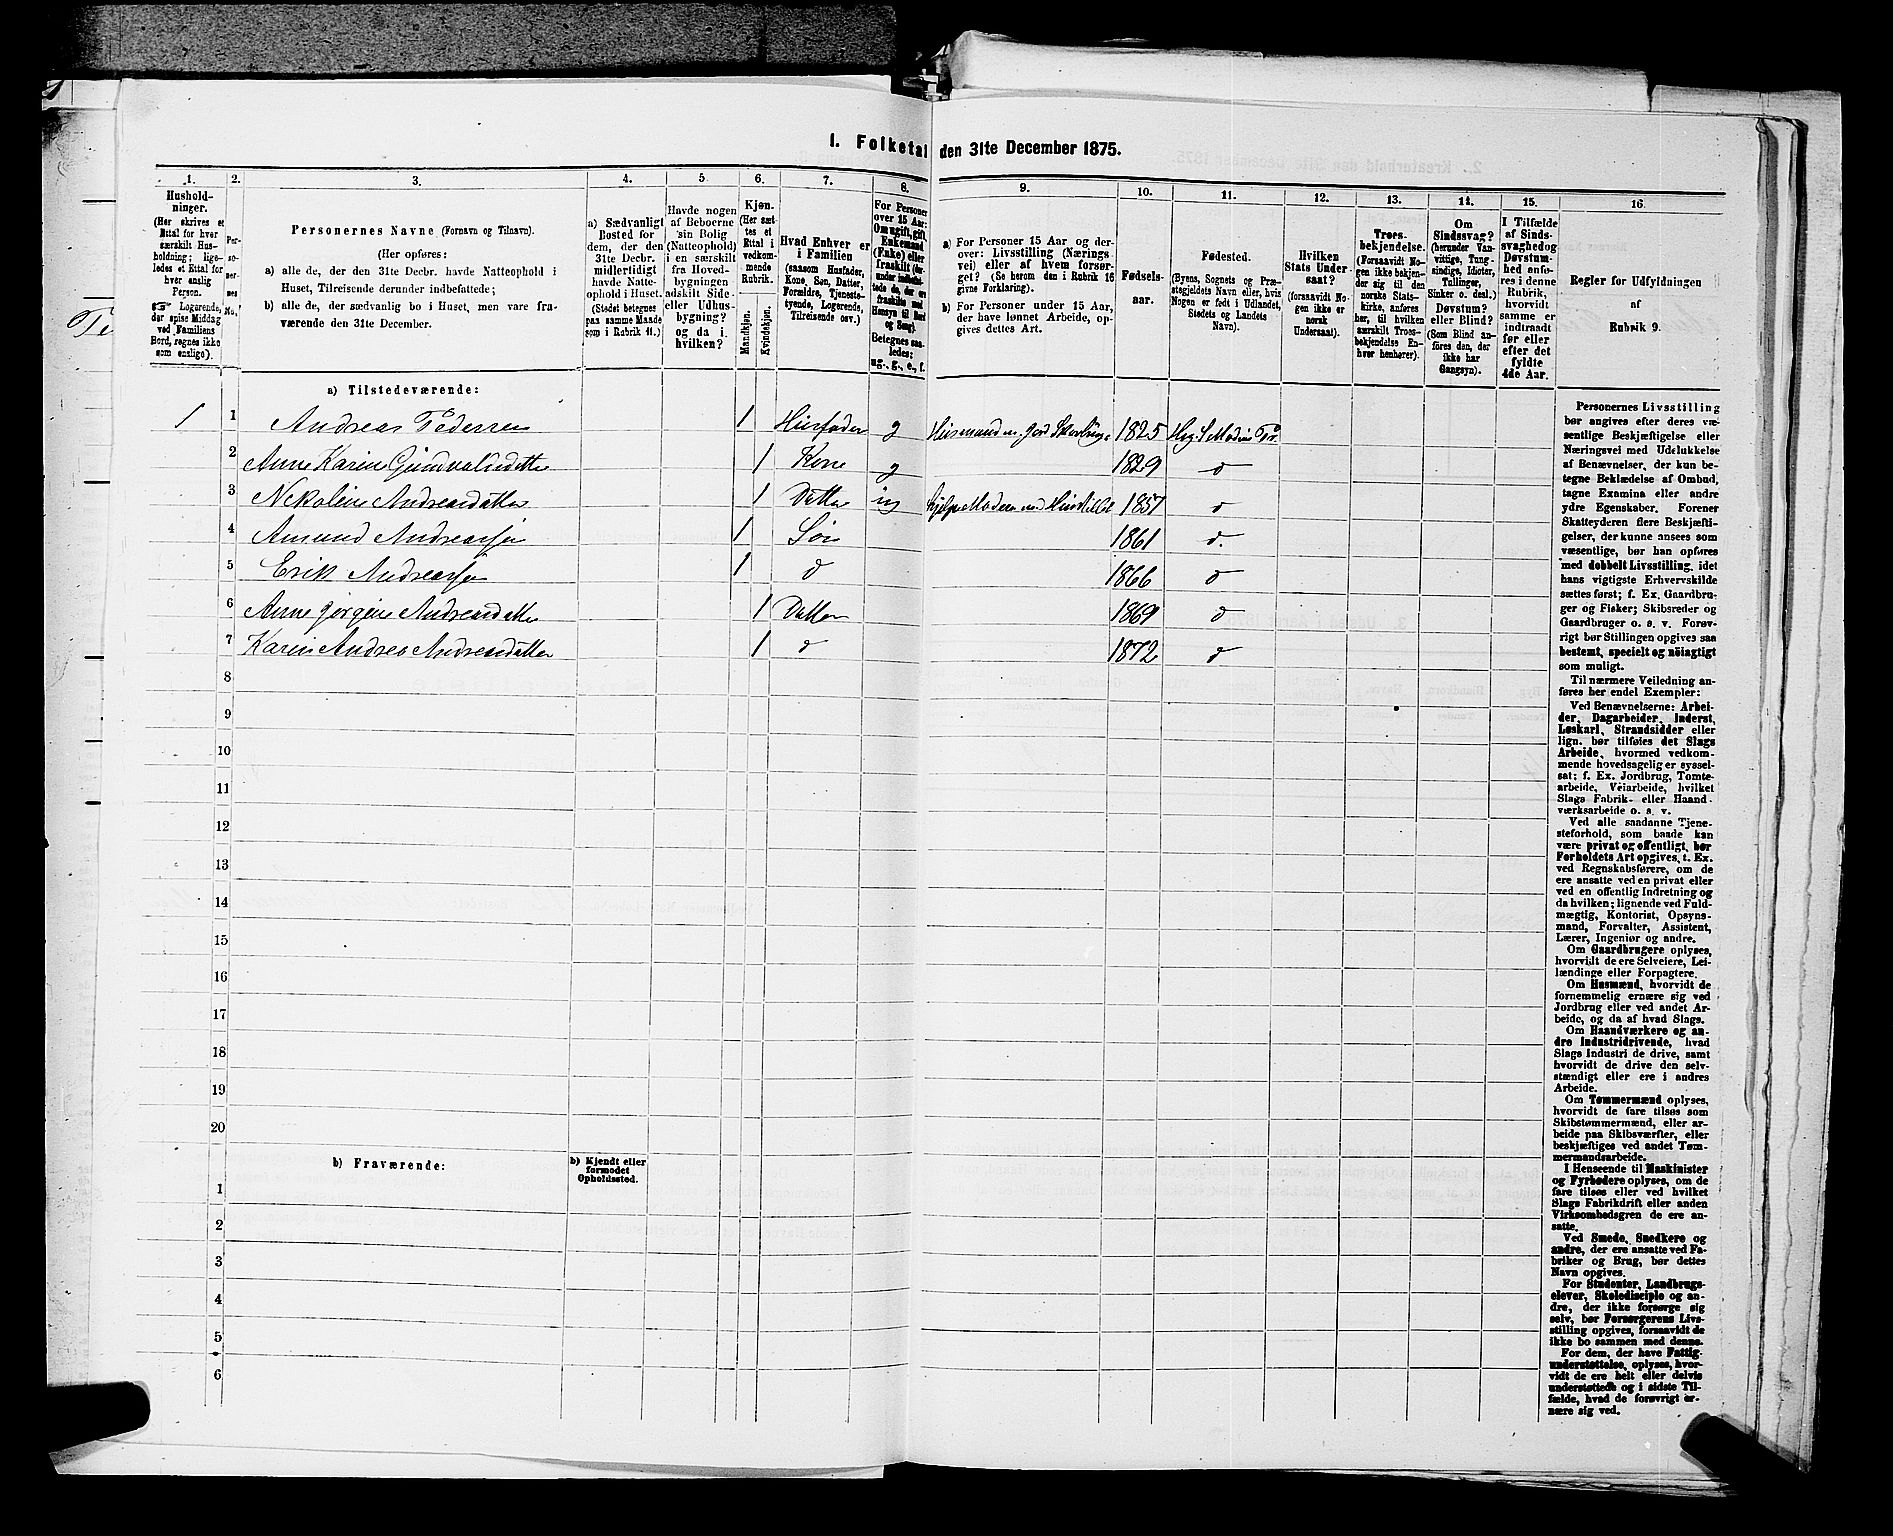 Te
1. Folketal den 31te December 1875.
1.
Hushold-
ninger.
(Her skrives et
Ettal for hver
særskilt Hus-
holdning; lige-
ledes et Ettal for
hver enslig
Person.
☞ Logerende,
der spise Middag
ved Familiens
Bord, regnes ikke
som enslige).
2.
Per-
so-
ner-
nes
No.
3.
Personernes Navne (Fornavn og Tilnavn).
(Her opføres:
a) alle de, der den 31te Decbr. havde Natteophold i
Huset, Tilreisende derunder indbefattede;
b) alle de, der sædvanlig bo i Huset, men vare fra-
værende den 31te December.
4.
a) Sædvanligt
Bosted for
dem, der den
31te Decbr.
midlertidigt
havde Natte-
ophold i Huset.
(Stedet betegnes
paa samme Maade
som i Rubrik 11.)
5
Havde nogen
af Beboerne
sin Bolig
(Natteophold)
i en særskilt
fra Hoved-
bygningen
adskilt Side-
eller Udhus-
bygning?
og da i
hvilken?
6.
Kjøn.
(Her sæt-
tes et
Ettal i
vedkom-
mende
Rubrik.
Mandkjøn.
Kvindekjøn.
7.
Hvad Enhver er
i Familien
(saasom Husfader,
Kone, Søn, Datter,
Forældre, Tjeneste-
tyende, Logerende,
Tilreisende osv.)
8.
For Personer
over 15 Aar:
Om ugift, gift,
Enkemand
(Enke) eller
fraskilt
Betegnes saa-
ledes:
ug., g., e., f.
9.
a) For Personer 15 Aar og der-
over: Livsstilling (Nærings-
vei) eller af hvem forsør-
get? (Se herom den i Rubrik 16
givne Forklaring).
b) For Personer under 15 Aar,
der have lønnet Arbeide, op-
gives dettes Art.
10.
Fødsels-
aar.
11.
Fødested.
(Byens, Sognets og Præ-
stegjeldets Navn eller, hvis
Nogen er født i Udlandet,
Stedets og Landets
Navn).
12.
Hvilken
Stats Under-
saat?
(forsaavidt No-
gen ikke er
norsk
Undersaat).
13.
Troes-
bekjendelse.
(Forsaavidt No-
gen ikke bekjen-
der sig til den
norske Stats-
kirke, anføres
her, til hvilken
særskilt Troes-
bekjendelse En-
hver henhører).
14.
Om
Sindssvag?
(herunder Van-
vittige, Tung-
sindige, Idioter,
Tullinger,
Sinker o. desl.)
Døvstum?
eller Blind?
(Som Blind an-
føres den, der
ikke har
Gangsyn).
15.
I Tilfælde
af Sinds-
svaghed og
Døvstum-
hed anfø-
res i denne
Rubrik,
hvorvidt
samme er
indtraadt
før eller
efter det
fyldte
4de Aar.
16.
Regler for Udfyldningen
af
Rubrik 9.
a) Tilstedeværende:
1 1 Andreas Pedersen 1 Husfader g Husmand m. Jord 1825
2 Anne Karine 1 Kone g 1829 d
3 Nikoline Andreasdatter 1 Datter ug 1857 d
4 Amund Andreasen 1 Søn 1861 d.
5 Erik Andreasen 1 d 1866 d
6 Anne Jørgine Andreasdatter 1 Datter 1869 d
7 Karen Andrea Andreasdatter 1 d 1872 d
8
9
10
11
12
13
14
15
16
17
18
19
20
b) Fraværende:
b) Kjendt eller
formodet
Opholdssted.
1
2
3
4
5
6
Personernes Livsstilling
bør angives efter deres væ-
sentlige Beskjæftigelse eller
Næringsvei med Udelukkelse
af Benævnelser, der kun be-
tegne Beklædelse af Ombud,
tagne Examina eller andre
ydre Egenskaber. Forener
Skatteyderen flere Beskjæfti-
gelser, der kunne ansees som
væsentlige, bør han opføres
med dobbelt Livsstilling, idet
hans vigtigste Erhvervskilde
sættes først; f. Ex. Gaardbru-
ger og Fisker; Skibsreder og
Gaardbruger o. s. v. Forøv-
rigt bør Stillingen opgives saa
bestemt, specielt og nöiagtigt
som muligt.
Til nærmere Veiledning an-
føres her endel Exempler:
Ved Benævnelserne: Arbei-
der, Dagarbeider, Inderst,
Løskarl, Strandsidder eller
lign. bør tilføies det Slags
Arbeide, hvormed vedkom-
mende hovedsagelig er syssel-
sat; f. Ex. Jordbrug, Tomte-
arbeide, Veiarbeide, hvilket
Slags Fabrik- eller Haand-
værksarbeide o. s. v.
Ved alle saadanne Tjene-
steforhold, som baade kan
være privat og offentligt, bør
Forholdets Art opgives, t. Ex.
ved Regnskabsførere, om de
ere ansatte ved en privat eller
ved en offentlig Indretning og
da hvilken; lignende ved Fuld-
mægtig, Kontorist, Opsyns-
mand, Forvalter, Assistent,
Lærer, Ingeniør og andre.
Om Gaardbrugere oplyses,
hvorvidt de ere Selveiere, Lei-
lændinge eller Forpagtere.
Om Husmænd, hvorvidt de
fornemmelig ernære sig ved
Jordbrug eller ved andet Ar-
beide, og da af hvad Slags.
Om Haandværkere og an-
dre Industridrivende, hvad
Slags Industri de drive, samt
hvorvidt de drive den selv-
stændigt eller ere i andres
Arbeide.
Om Tømmermænd oplyses,
hvorvidt de fare tilsøs som
Skibstømmermænd, eller ar-
beide paa Skibsværfter, eller
beskjæftiges ved andet Tøm-
mermandsarbeide.
I Henseende til Maskinister
og Fyrbødere oplyses, om de
fare tilsøs eller ved hvilket
Slags Fabrikdrift eller anden
Virksomhedsgren de ere an-
satte.
Ved Smede, Snedkere og
andre, der ere ansatte ved Fa-
briker og Brug, bør dettes
Navn opgives.
For Studenter, Landbrugs-
elever, Skoledisciple og an-
dre, der ikke forsørge sig
selv, bør Forsørgerens Livs-
stilling opgives, forsaavidt de
ikke bo sammen med denne.
For dem, der have Fattig-
understøttelse, oplyses, hvor-
vidt de ere helt eller delvis
understøttede og i sidste Til-
fælde, hvad de forøvrigt er-
nære sig ved.